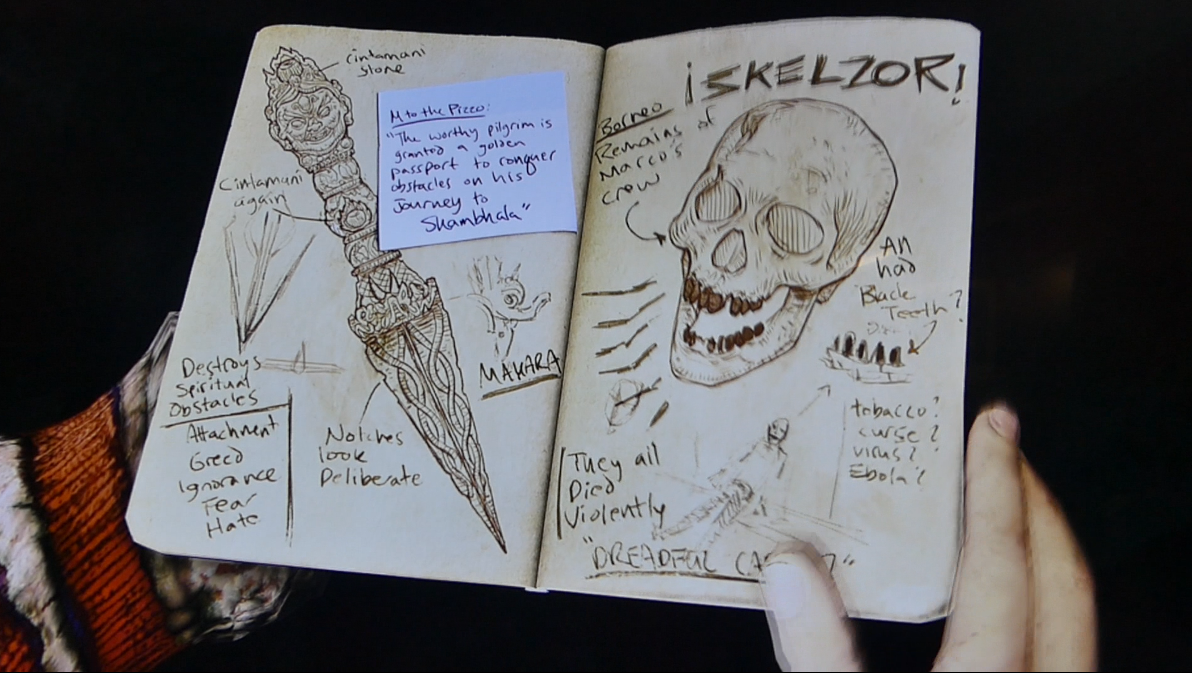 cintamani
stone
M to the Pizzo:
"The worthy pilgrim is
granted a golden
passport to conquer
obstacles on his
Journey to
Shambhala"
Cintamani
again
MAKARA
Destroys
Spiritual
Obstacles
Attachment
Greed
Ignorance
Fear
Hate
Notches
look
Deliberate
¡SKELZOR!
Borneo
Remains of
Marco's
crew
All
had
Black
Teeth?
tobacco?
curse?
virus?
Ebola?
They all
Died
Violently
"DREADFUL